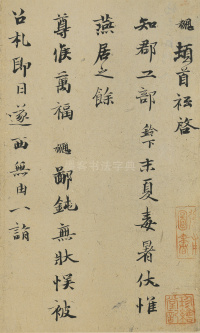 頓首禠啓
知郡工部 鈴下末夏毒暑伏惟
燕居之餘
尊候萬福 鄙鈍無狀悮被
召札即日遂西無由一詣